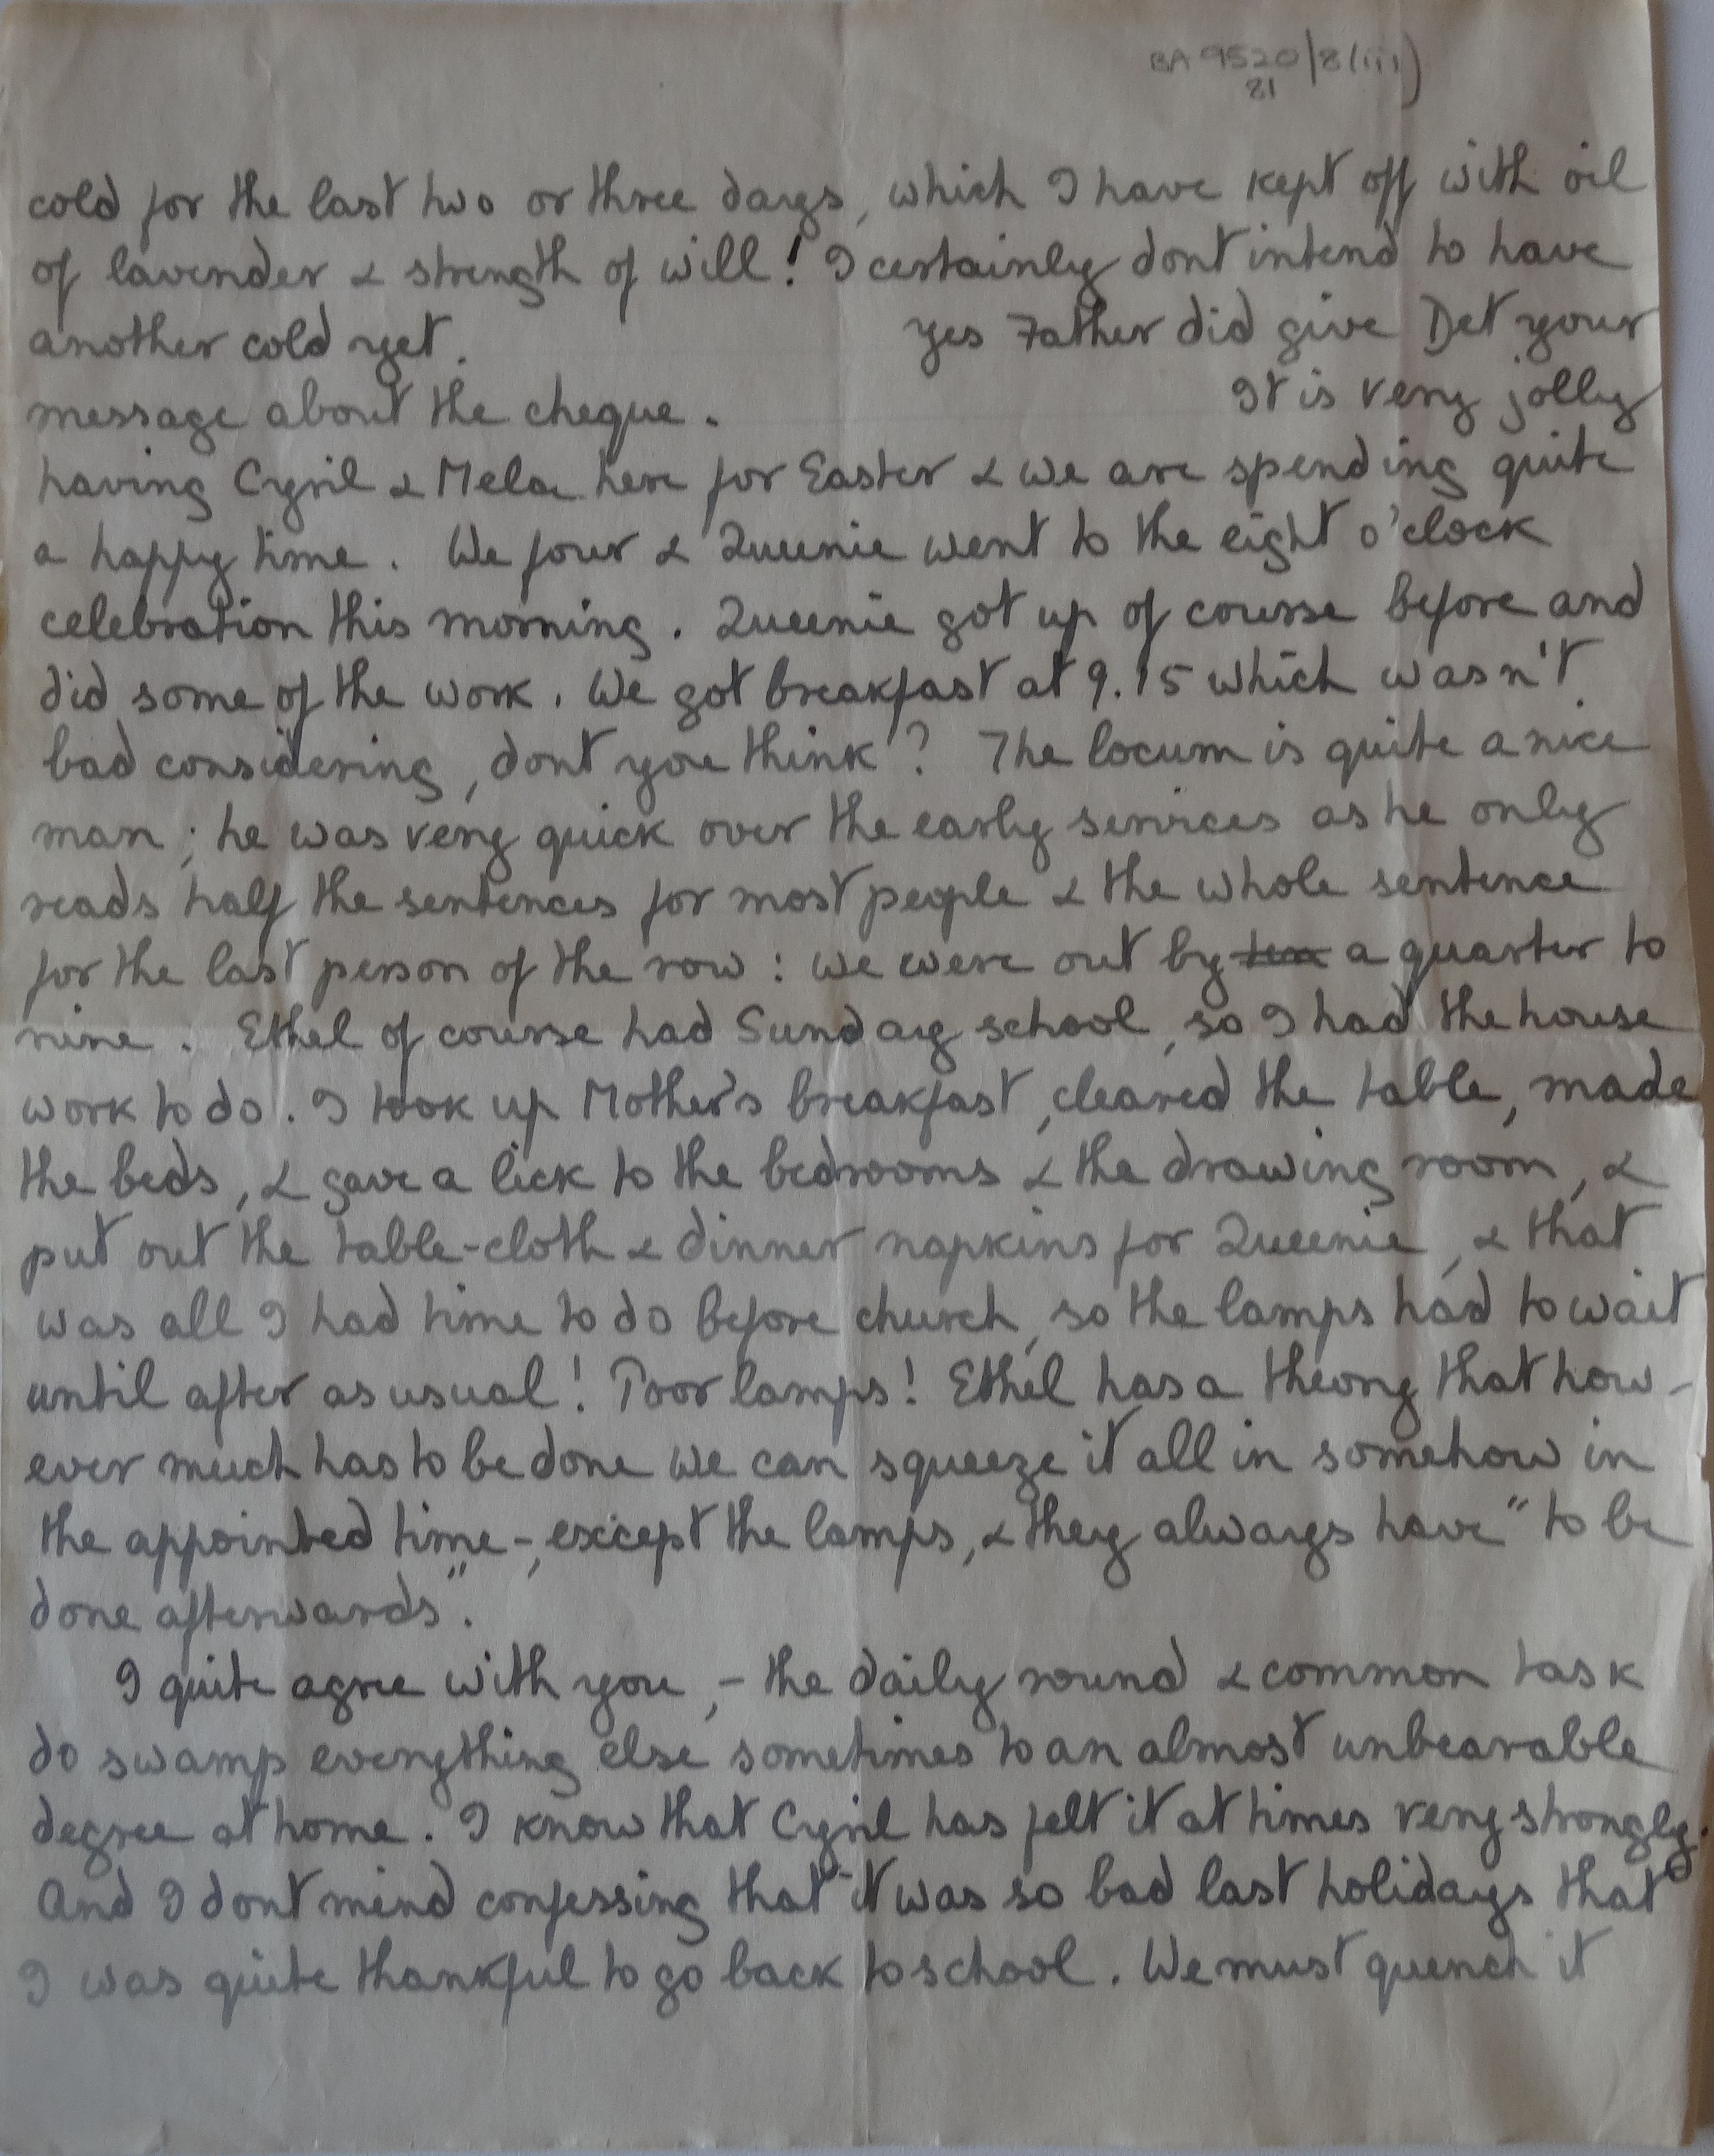 BA 9520/8(iii)
21
cold for the last two or three days, which I have kept off with oil
of lavender & strength of will! I certainly dont intend to have
another cold yet. Yes Father did give Det your
message about the cheque. It is very jolly
having Cyril & Mela here for Easter & we are spending quite
a happy time. We four & Queenie went to the eight o'clock
celebration this morning. Queenie got up of course before and
did some of the work. We got breakfast at 9.15 which wasn't
bad considering, dont you think? The locum is quite a nice
man; he was very quick over the early services as he only
reads half the sentences for most people & the whole sentence
for the last person of the row: we were out by ten a quarter to
nine. Ethel of course had Sunday school, so I had the house
work to do. I took up Mother's breakfast, cleared the table, made
the beds, & gave a lick to the bedrooms & the drawing room, &
put out the table-cloth & dinner napkins for Queenie, & that
was all I had time to do before church, so the lamps had to wait
until after as usual! Poor lamps! Ethel has a theory that how-
ever much has to be done we can squeeze it all in somehow in
the appointed time -, except the lamps, & they always have "to be
done afterwards".
I quite agree with you, - the daily round & common task
do swamp everything else sometimes to an almost unbearable
degree at home. I know that Cyril has felt it at times very strongly.
And I dont mind confessing that it was so bad last holidays that
I was quite thankful to go back to school. We must quench it